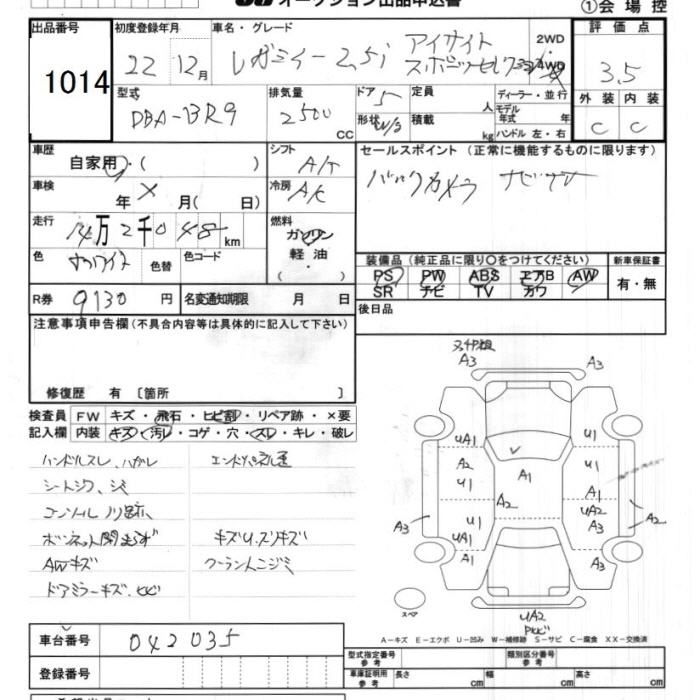 オークション出品申込書
①会場控
出品番号
1014
初度登録年月
22年12月
車名・グレード
レガシィー 2.5i アイサイト
スポーツセレクション
2WD
4WD
評価点
3.5
外装 内装
C C
型式
DBA-BR9
排気量
2500 CC
ドア 5
形状 W/G
定員 人
積載 kg
ディーラー・並行
モデル年式 年
ハンドル 左・右
車歴
自家用・( )
車検
年 × 月( 日)
走行
14万2千048 km
色
色替
色コード
シフト
A/T
冷房
A/C
燃料
ガソリン
軽油
( ・ )
セールスポイント (正常に機能するものに限ります)
バックカメラ ナビ
装備品 (純正品に限り○をつけてください)
PS PW ABS エアB AW
SR ナビ TV カワ
新車保証書
有・無
R券 9130 円
名変通知期限 月 日
後日品
注意事項申告欄(不具合内容等は具体的に記入して下さい)
修復歴 有 〔箇所 〕
検査員記入欄
FW キズ・飛石・ヒビ割・リペア跡・×要
内装 キズ・汚レ・コゲ・穴・スレ・キレ・破レ
ハンドルスレ、ハガレ
シートシワ、シミ
コンソールノリ跡、
ボンネット閉まらず
AWキズ
ドアミラーキズ、ヒビ
エンドパネル歪
キズU、スリキズ
クーラントニジミ
A3 A3
UA1 U1
A2
U1 A1 A1
A2 UA2
U1 A3
A3 A2
A1 A3
スペア
UA2
A-キズ E-エクボ U-凹み W-補修跡 S-サビ C-腐食 XX-交換済
車台番号
042035
登録番号
型式指定番号 参考
類別区分番号 参考
車庫証明用 参考
長さ cm
幅 cm
高さ cm